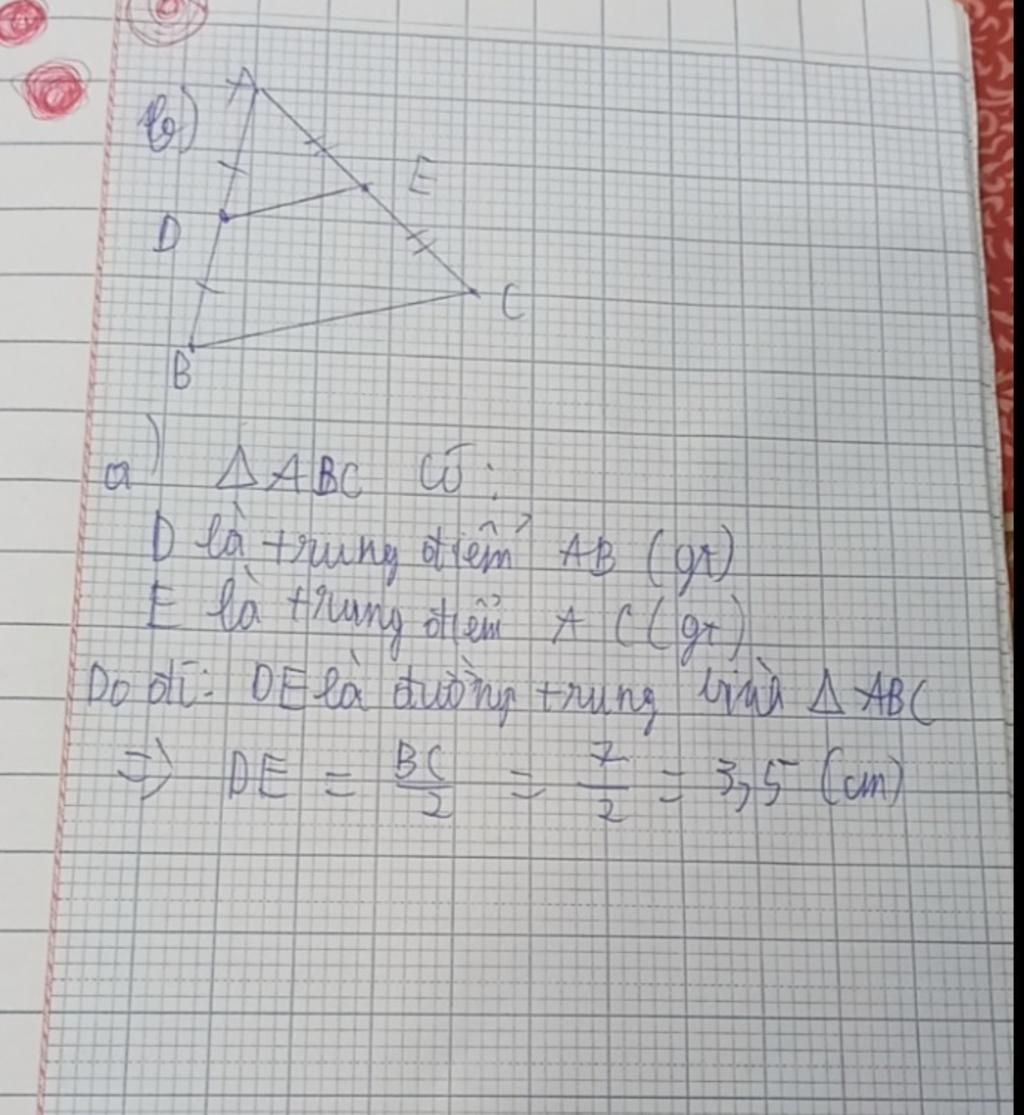 b)
A
E
D
C
B
a) Δ ABC có :
D là trung điểm AB (gt)
E là trung điểm AC (gt)
Do đó: DE là đường trung bình Δ ABC
=> DE = BC/2 = 7/2 = 3,5 (cm)